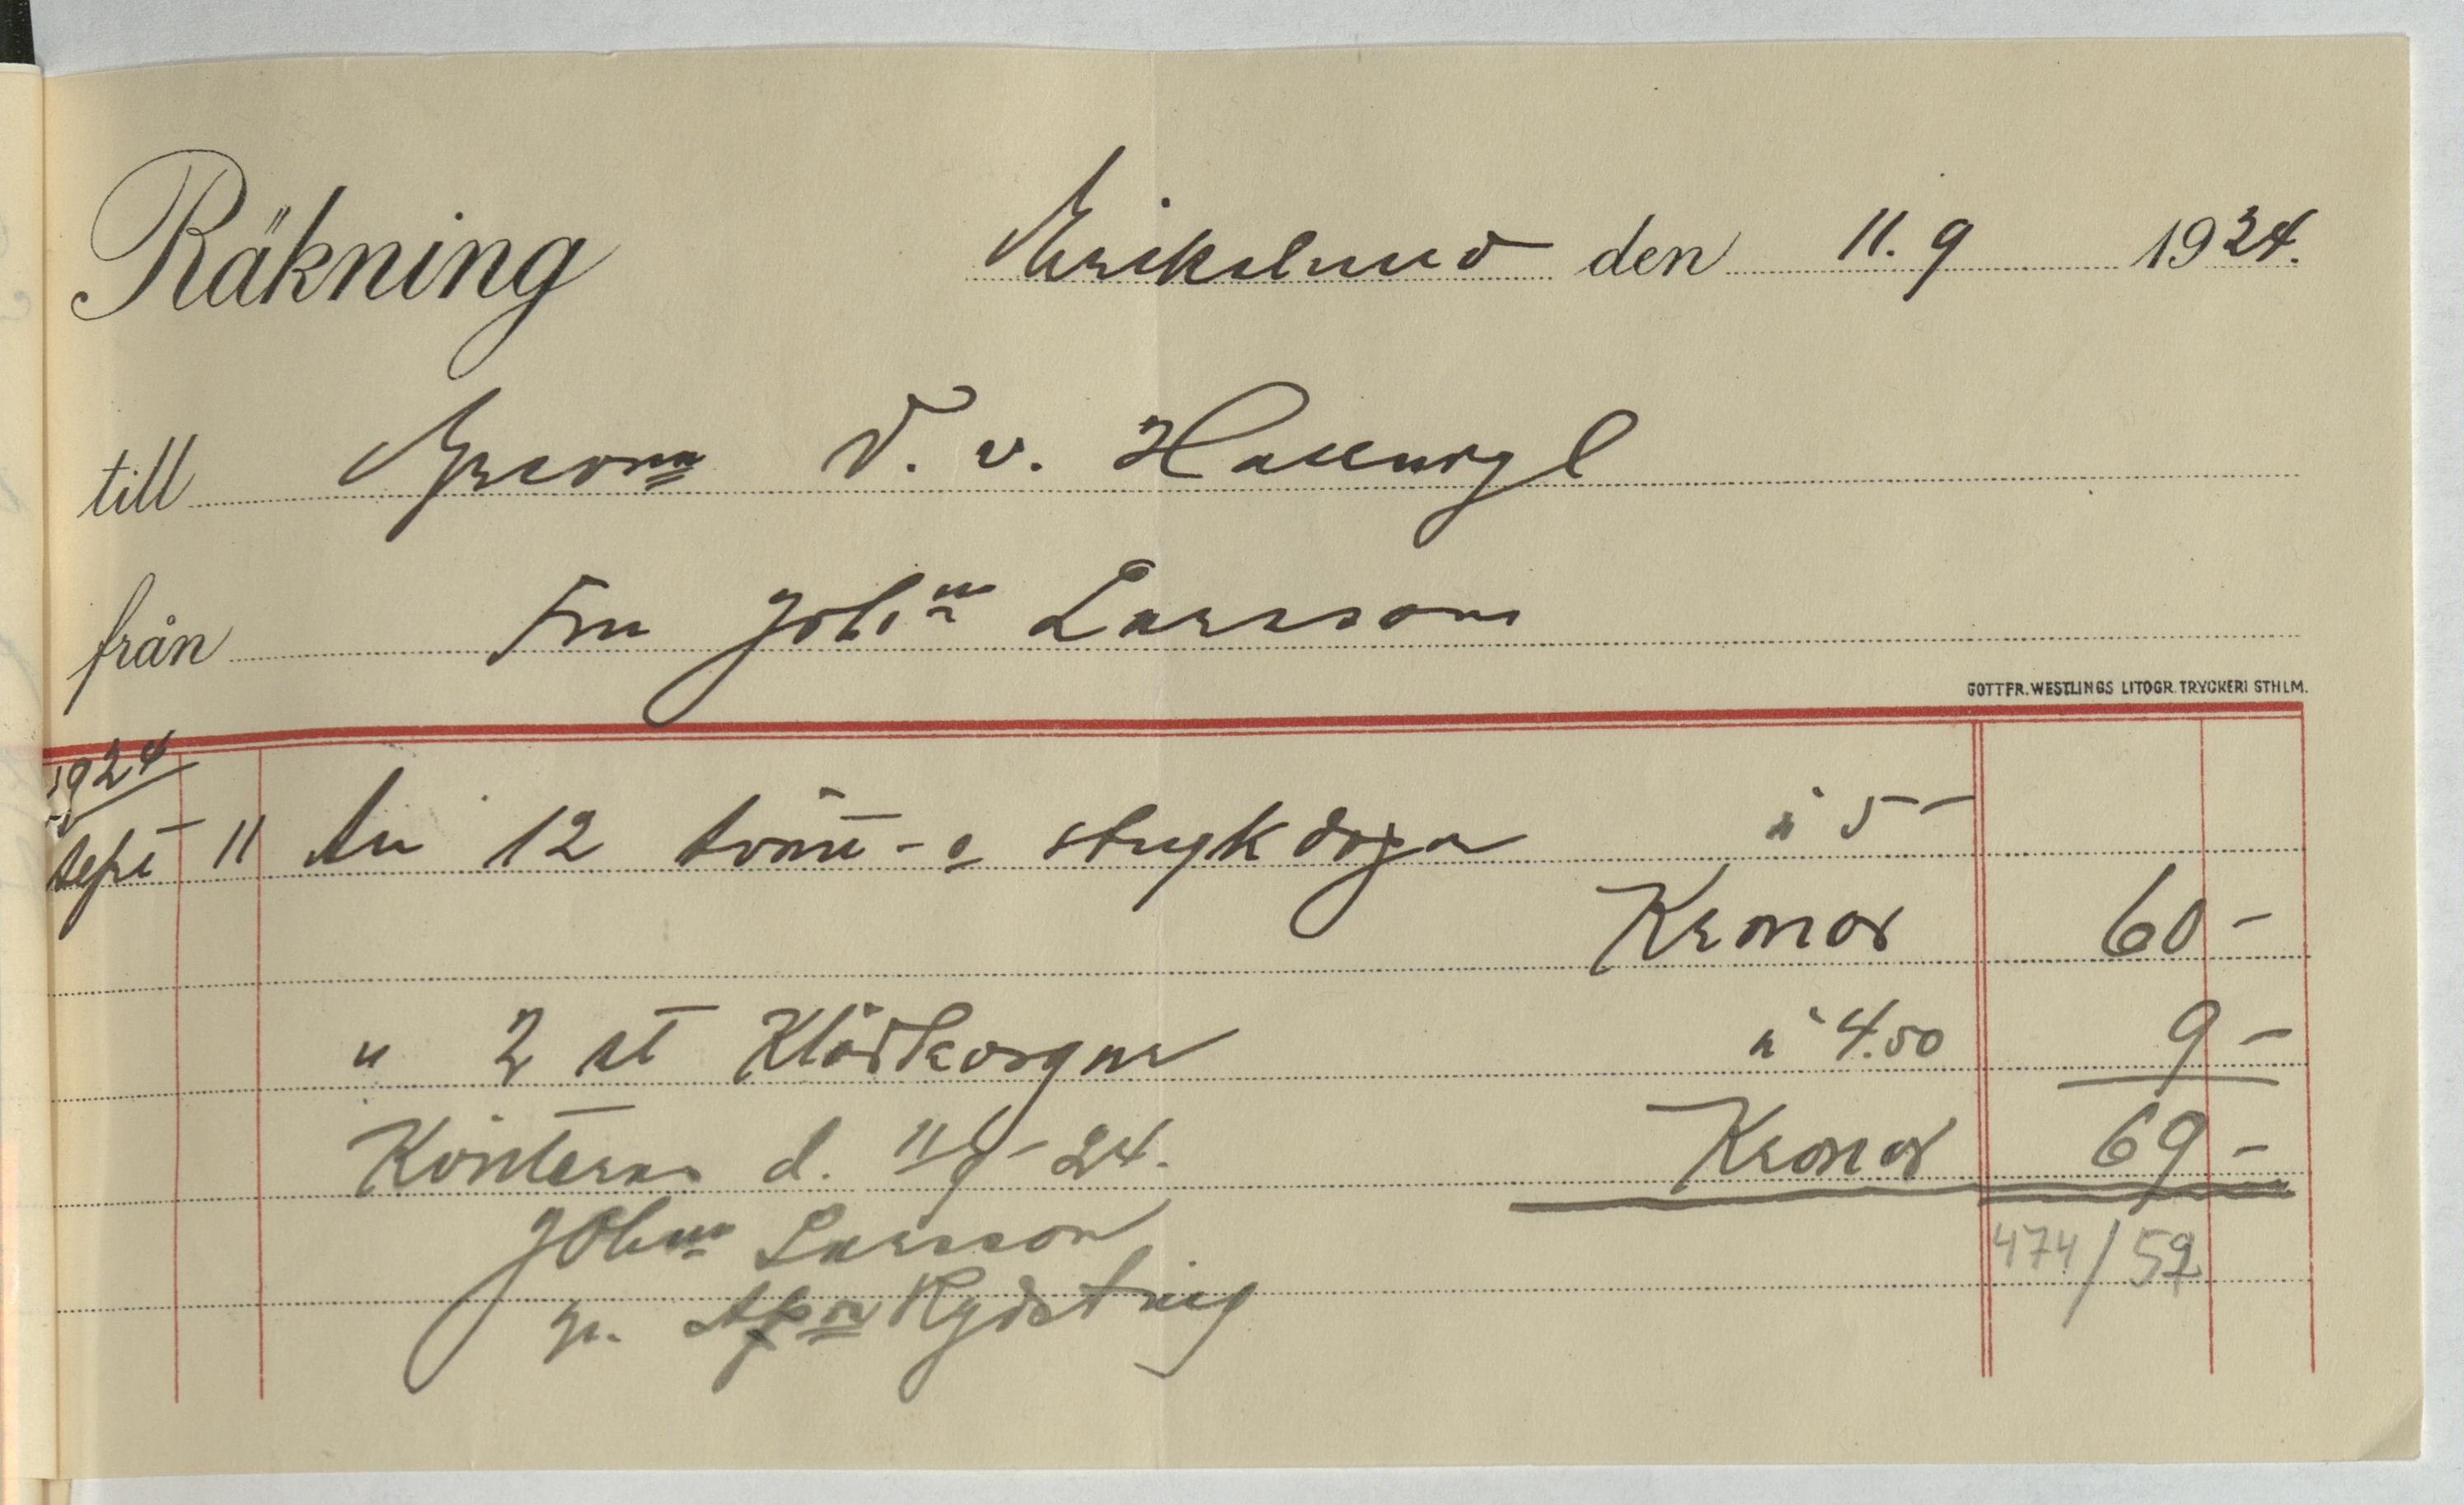 Räkning Erikslund den 11.9 1924.
till Grevinn W. v. Hallwyl
från Fru Joh:na Larsson
GOTTFR. WESTLINGS LITOGR. TRYCKERI STHLM.
1924
Sept 11 An 12 tvätt- o strykdagar à 5 –
Kronor 60 –
" 2 st Klädkorgar à 4.50 9 –
Kvitteras d. 11/9 – 24. Kronor 69 –
Johna Larsson
474/59
gm Rydstring